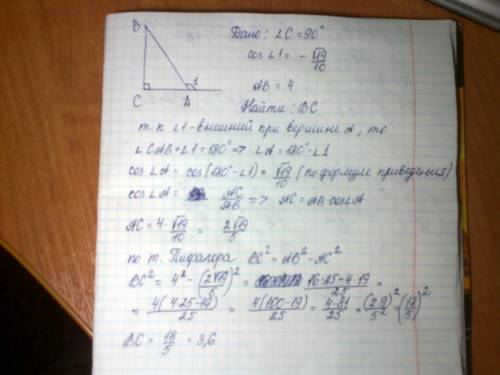 B
C A 1
Дано: ∠C = 90°
cos ∠1 = - √19/10
AB = 4
Найти: BC
т.к ∠1 - внешний при вершине A, то
∠CAB + ∠1 = 180° => ∠A = 180° - ∠1
cos ∠A = cos (180° - ∠1) = √19/10 (по формуле приведения)
cos ∠A = AC/AB => AC = AB · cos ∠A
AC = 4 · √19/10 = 2√19/5
по т. Пифагора BC² = AB² - AC²
BC² = 4² - (2√19/5)² = 16·25 - 4·19/25 =
= 4(4·25 - 19)/25 = 4(100 - 19)/25 = 4·81/25 = (2·9)²/5² = (18/5)²
BC = 18/5 = 3,6